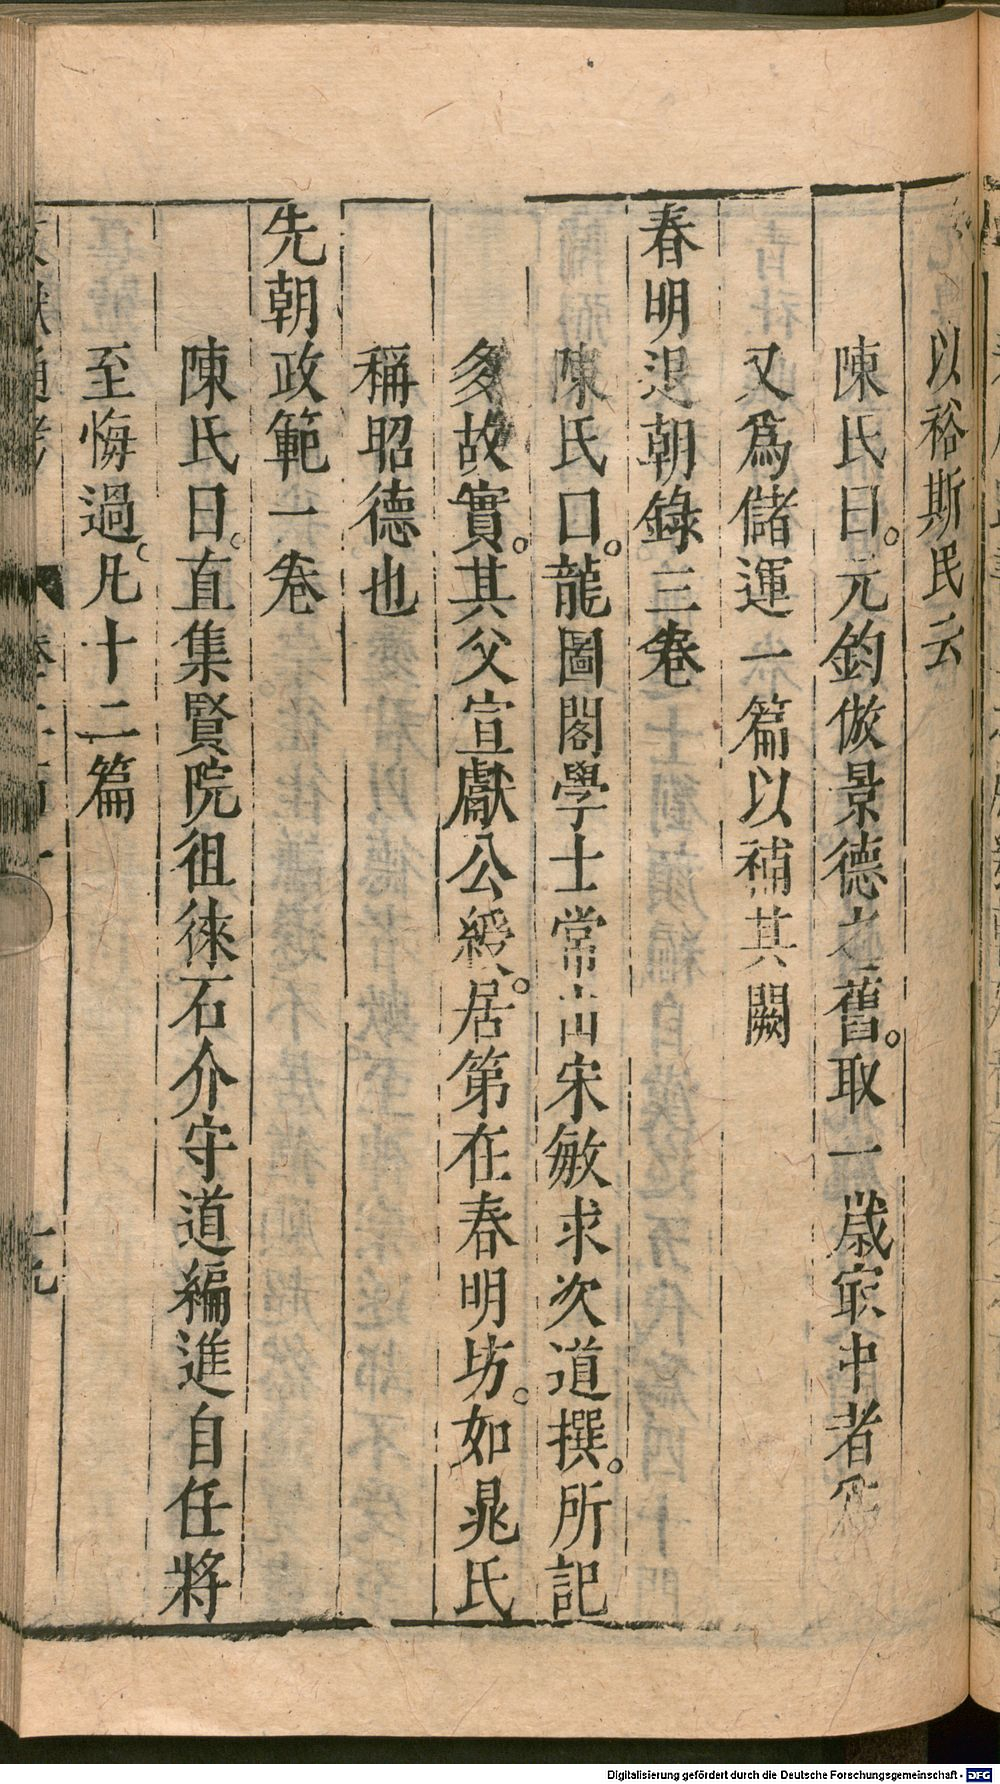 以裕斯民云
陳氏曰。元鈞倣景德之舊。取一歲宻中者爲
又爲儲運一篇以補其闕
春明退朝錄三卷
陳氏曰。龍圖閣學士常山宋敏求次道撰。所記
多故實。其父宣獻公綬。居第在春明坊。如晁氏
稱昭德也
先朝政範一卷
陳氏曰。直集賢院徂徠石介守道編進自任將
至悔過。凡十二篇
Digitalisierung gefördert durch die Deutsche Forschungsgemeinschaft - DFG